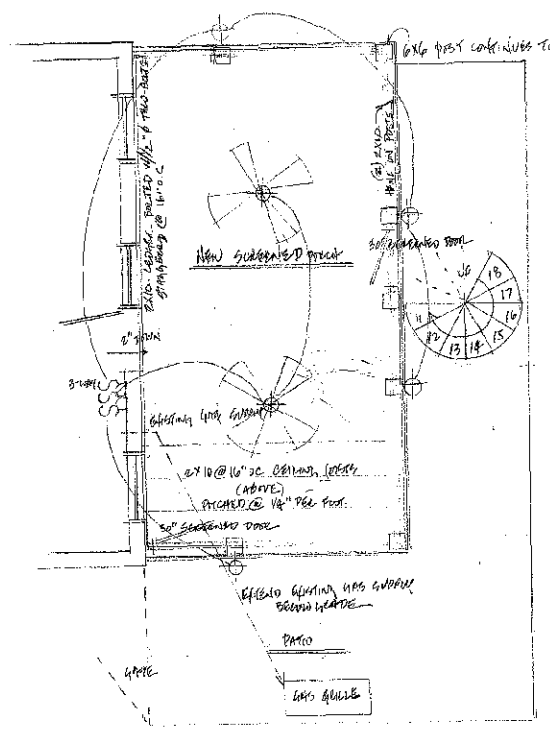 6X6 POST CONTINUES TO
2X10 LEDGER BOLTED W/ 1/2" Ø THRU-BOLTS
STAGGERED @ 16" O.C.
(2) 2X10
ON POSTS
NEW SCREENED PORCH
30" SCREENED DOOR
UP
18
17
16
15
14
13
12
11
2"
3-WAY
EXISTING GAS SUPPLY
2X10 @ 16" OC CEILING JOISTS
(ABOVE)
PITCHED @ 1/4" PER FOOT
30" SCREENED DOOR
EXTEND EXISTING GAS SUPPLY
BELOW GRADE
PATIO
GATE
GAS GRILLE